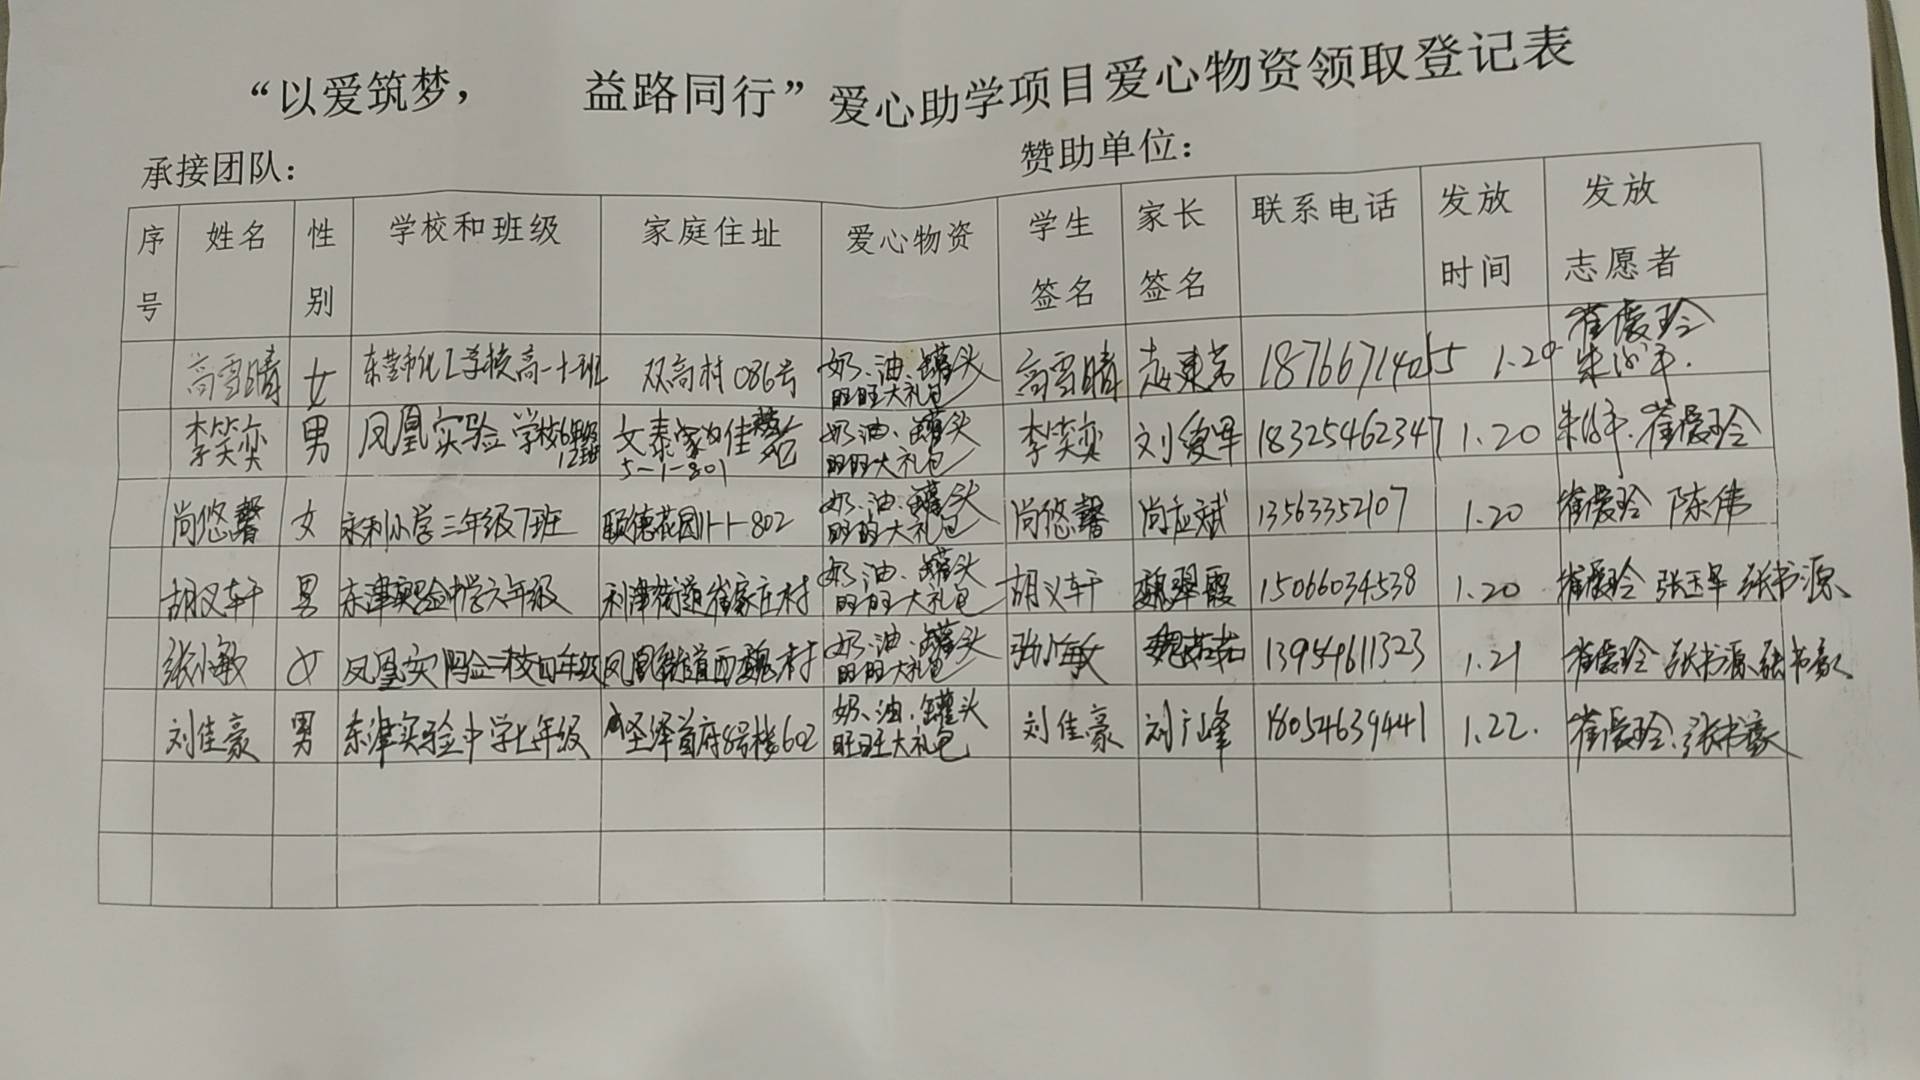 “以爱筑梦， 益路同行”爱心助学项目爱心物资领取登记表
承接团队： 赞助单位：
序号 姓名 性别 学校和班级 家庭住址 爱心物资 学生签名 家长签名 联系电话 发放时间 发放志愿者
高雪晴 女 东营市化工学校高一十班 双高村086号 奶、油、罐头 旺旺大礼包 高雪晴 18766714055 1.20 崔爱玲
李笑奕 男 凤凰实验学校6年级12班 文泰家园佳苑5-1-801 奶、油、罐头 旺旺大礼包 李笑奕 刘爱军 18325462347 1.20 崔爱玲
尚悠馨 女 永利小学三年级7班 颐德花园11-1-802 奶、油、罐头 旺旺大礼包 尚悠馨 尚应斌 13563352107 1.20 崔爱玲 陈伟
胡义轩 男 东津实验中学六年级 利津街道崔家庄村 奶、油、罐头 旺旺大礼包 胡义轩 魏翠霞 15066034538 1.20 崔爱玲 张玉军 张书源
张小敏 女 凤凰实验二校四年级 凤凰街道西魏村 奶、油、罐头 旺旺大礼包 张小敏 魏茹茹 13954611323 1.21 崔爱玲 张书源 张书豪
刘佳豪 男 东津实验中学七年级 圣泽首府8号楼602 奶、油、罐头 旺旺大礼包 刘佳豪 刘广峰 18054639441 1.22. 崔爱玲、张书豪